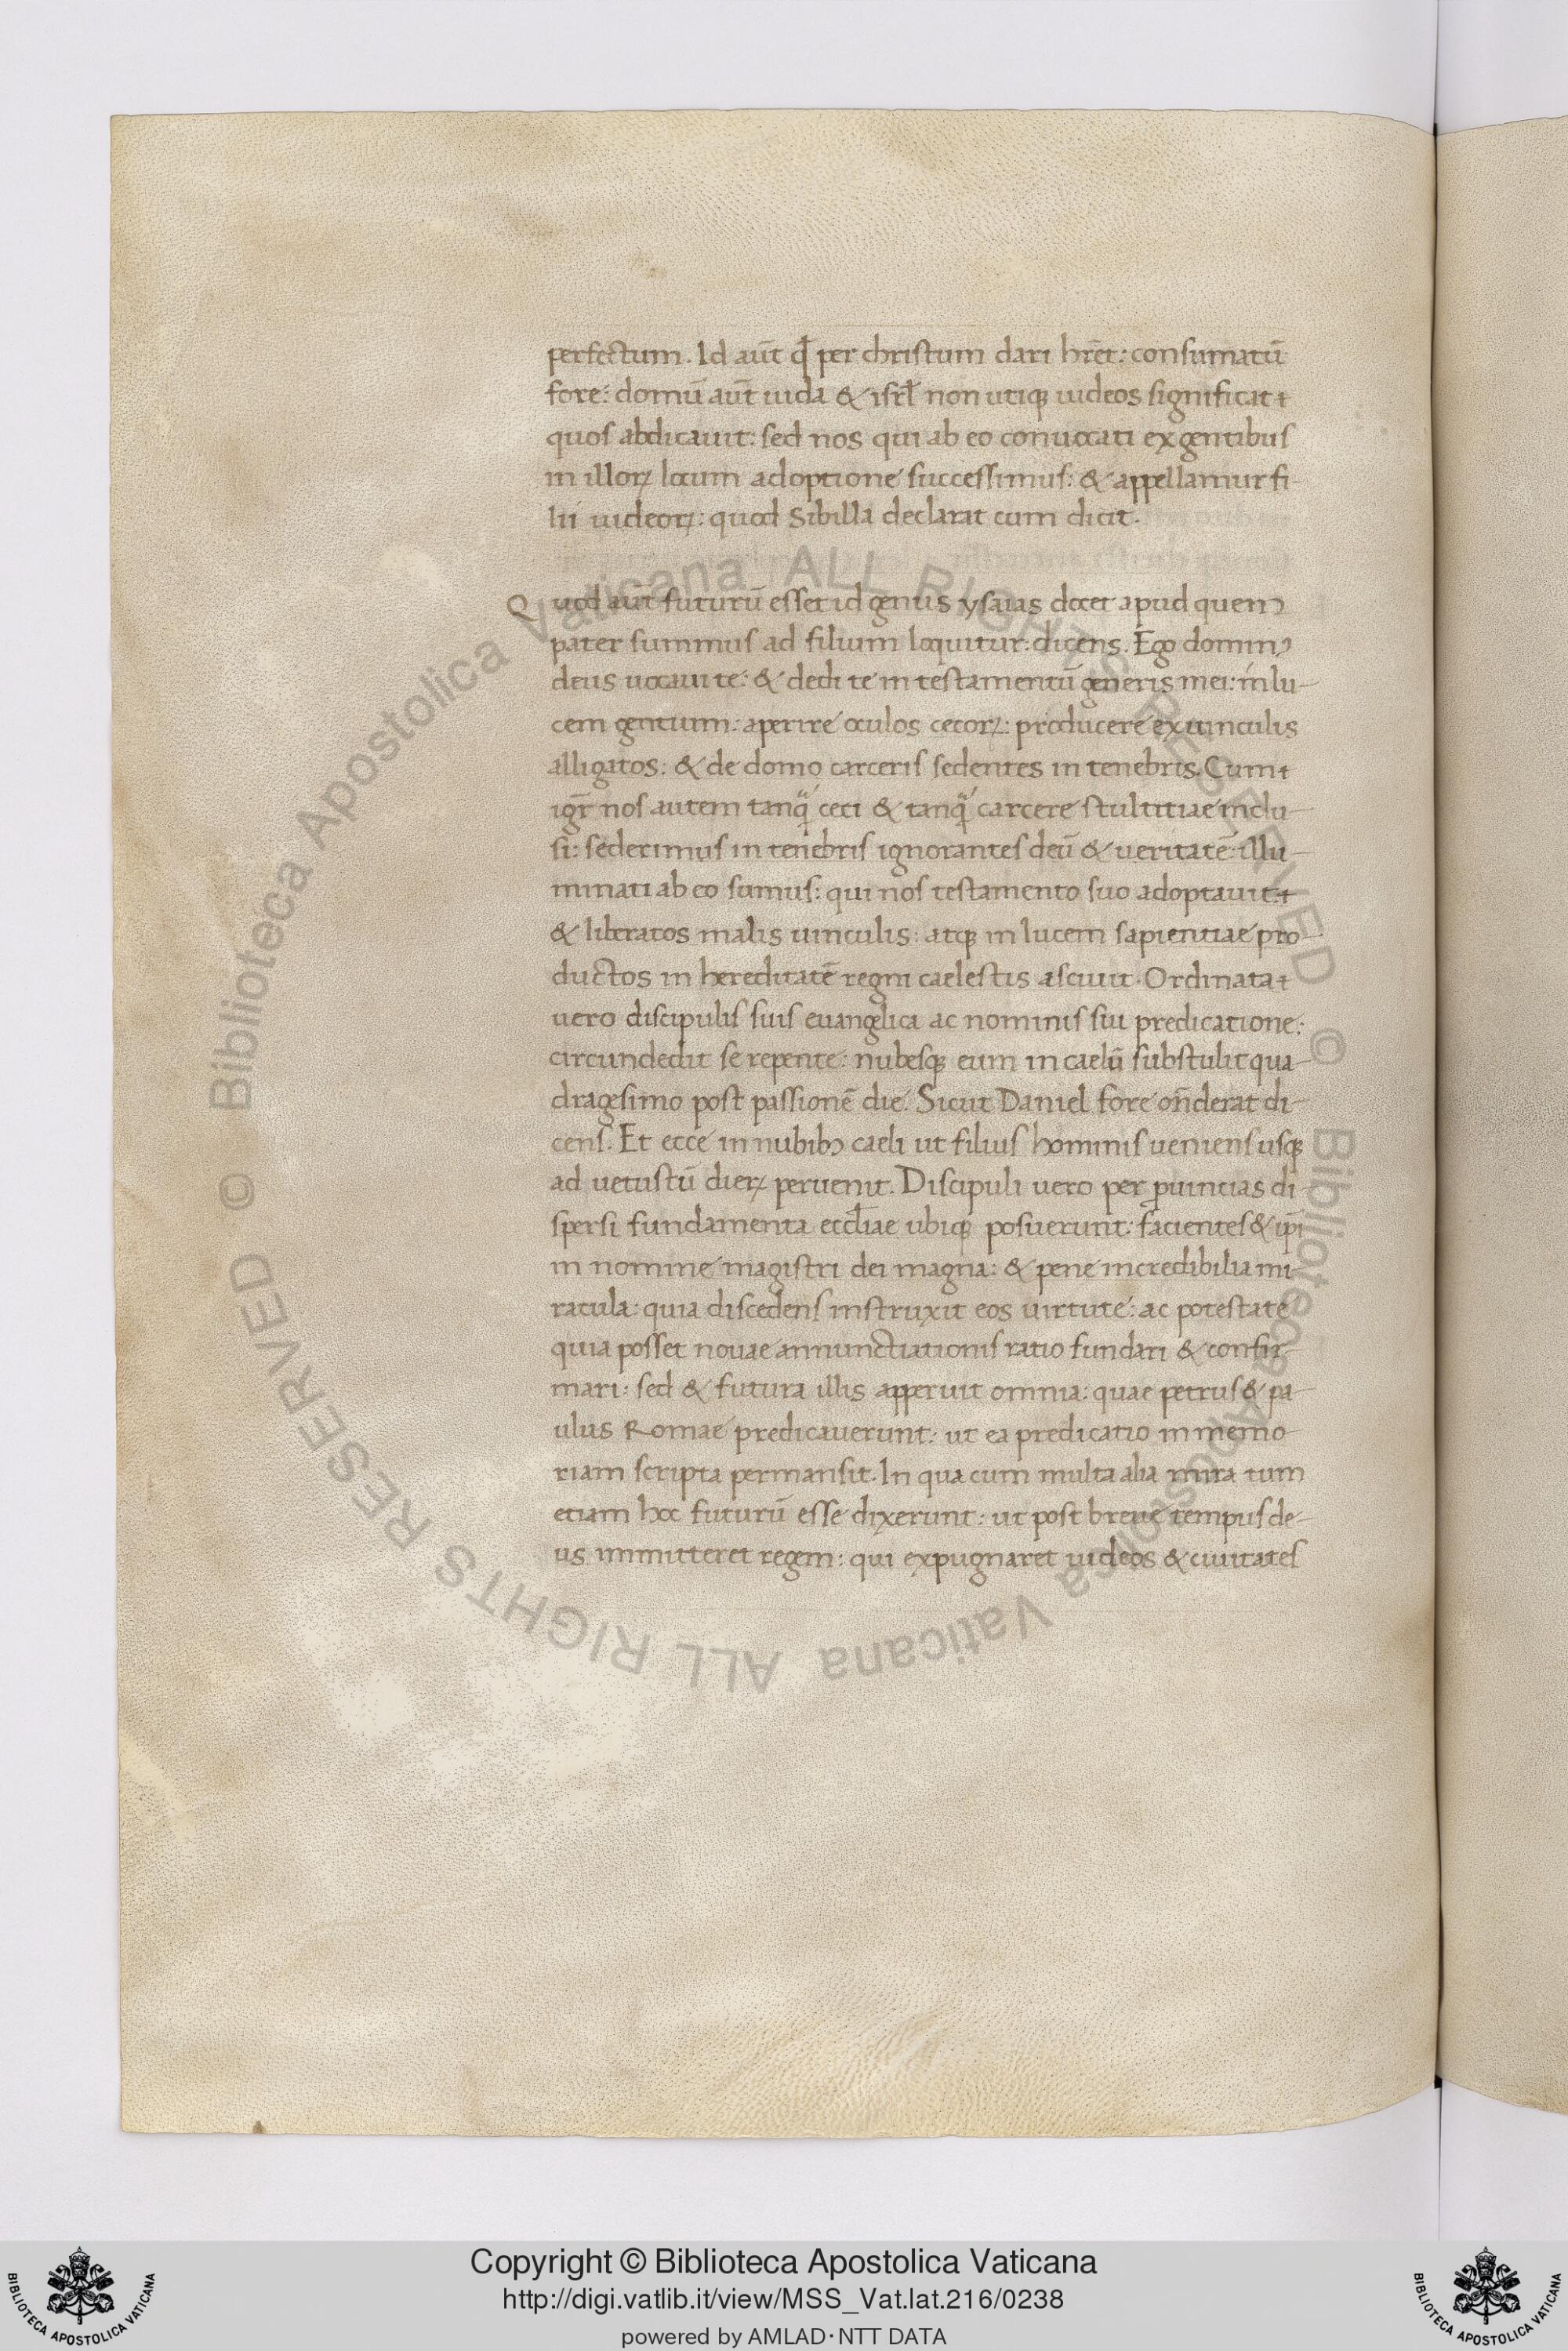 perfectum. Id aūt ꝙ per christum dari hr̄et: consumatū
fore: domū aūt iuda & isrł non utiqꝫ iudeos significat
quos abdicauit: sed nos qui ab eo conuocati ex gentibus
in illoꝝ locum adoptione successimus: & appellamur fi-
lii iudeoꝝ: quod Sibilla declarat cum dicit.
Quod aūt futurū esset id genus ysaias docet apud quem
pater summus ad filium loquitur: dicens. Ego dominꝰ
deus uocaui te: & dedi te in testamentū generis mei: in lu-
cem gentium: aperire oculos cecoꝝ: producere ex uinculis
alligatos: & de domo carceris sedentes in tenebris. Cum
igr̄ nos autem tanq̈ ceci & tanq̈ carcere stultitiae inclu-
si: sederimus in tenebris ignorantes deū & ueritatē: illu-
minati ab eo sumus: qui nos testamento suo adoptauit:
& liberatos malis uinculis: atqꝫ in lucem sapientiae pro-
ductos in hereditatē regni caelestis asciuit. Ordinata
uero discipulis suis euangelica ac nominis sui predicatione:
circundedit se repente: nubesqꝫ eum in caelū substulit qua-
dragesimo post passionē die. Sicut Daniel fore on̄derat di-
cens. Et ecce in nubibꝰ caeli ut filius hominis ueniens usqꝫ
ad uetustū dieꝝ peruenit. Discipuli uero per ꝓuincias di-
spersi fundamenta eccl̄iae ubiqꝫ posuerunt: facientes & ip̄i
in nomine magistri dei magna: & pene incredibilia mi-
racula: quia discedens instruxit eos uirtute: ac potestate
quia posset nouae annunctiationis ratio fundari & confir-
mari: sed & futura illis apperuit omnia: quae petrus & pa-
ulus Romae predicauerunt: ut ea predicatio in memo-
riam scripta permansit. In qua cum multa alia mira tum
etiam hoc futurū esse dixerunt: ut post breue tempus de-
us immitteret regem: qui expugnaret iudeos & ciuitates
Biblioteca Apostolica Vaticana ALL RIGHTS RESERVED ©
Biblioteca Apostolica Vaticana ALL RIGHTS RESERVED ©
Copyright © Biblioteca Apostolica Vaticana
http://digi.vatlib.it/view/MSS_Vat.lat.216/0238
powered by AMLAD·NTT DATA
BIBLIOTECA APOSTOLICA VATICANA
BIBLIOTECA APOSTOLICA VATICANA